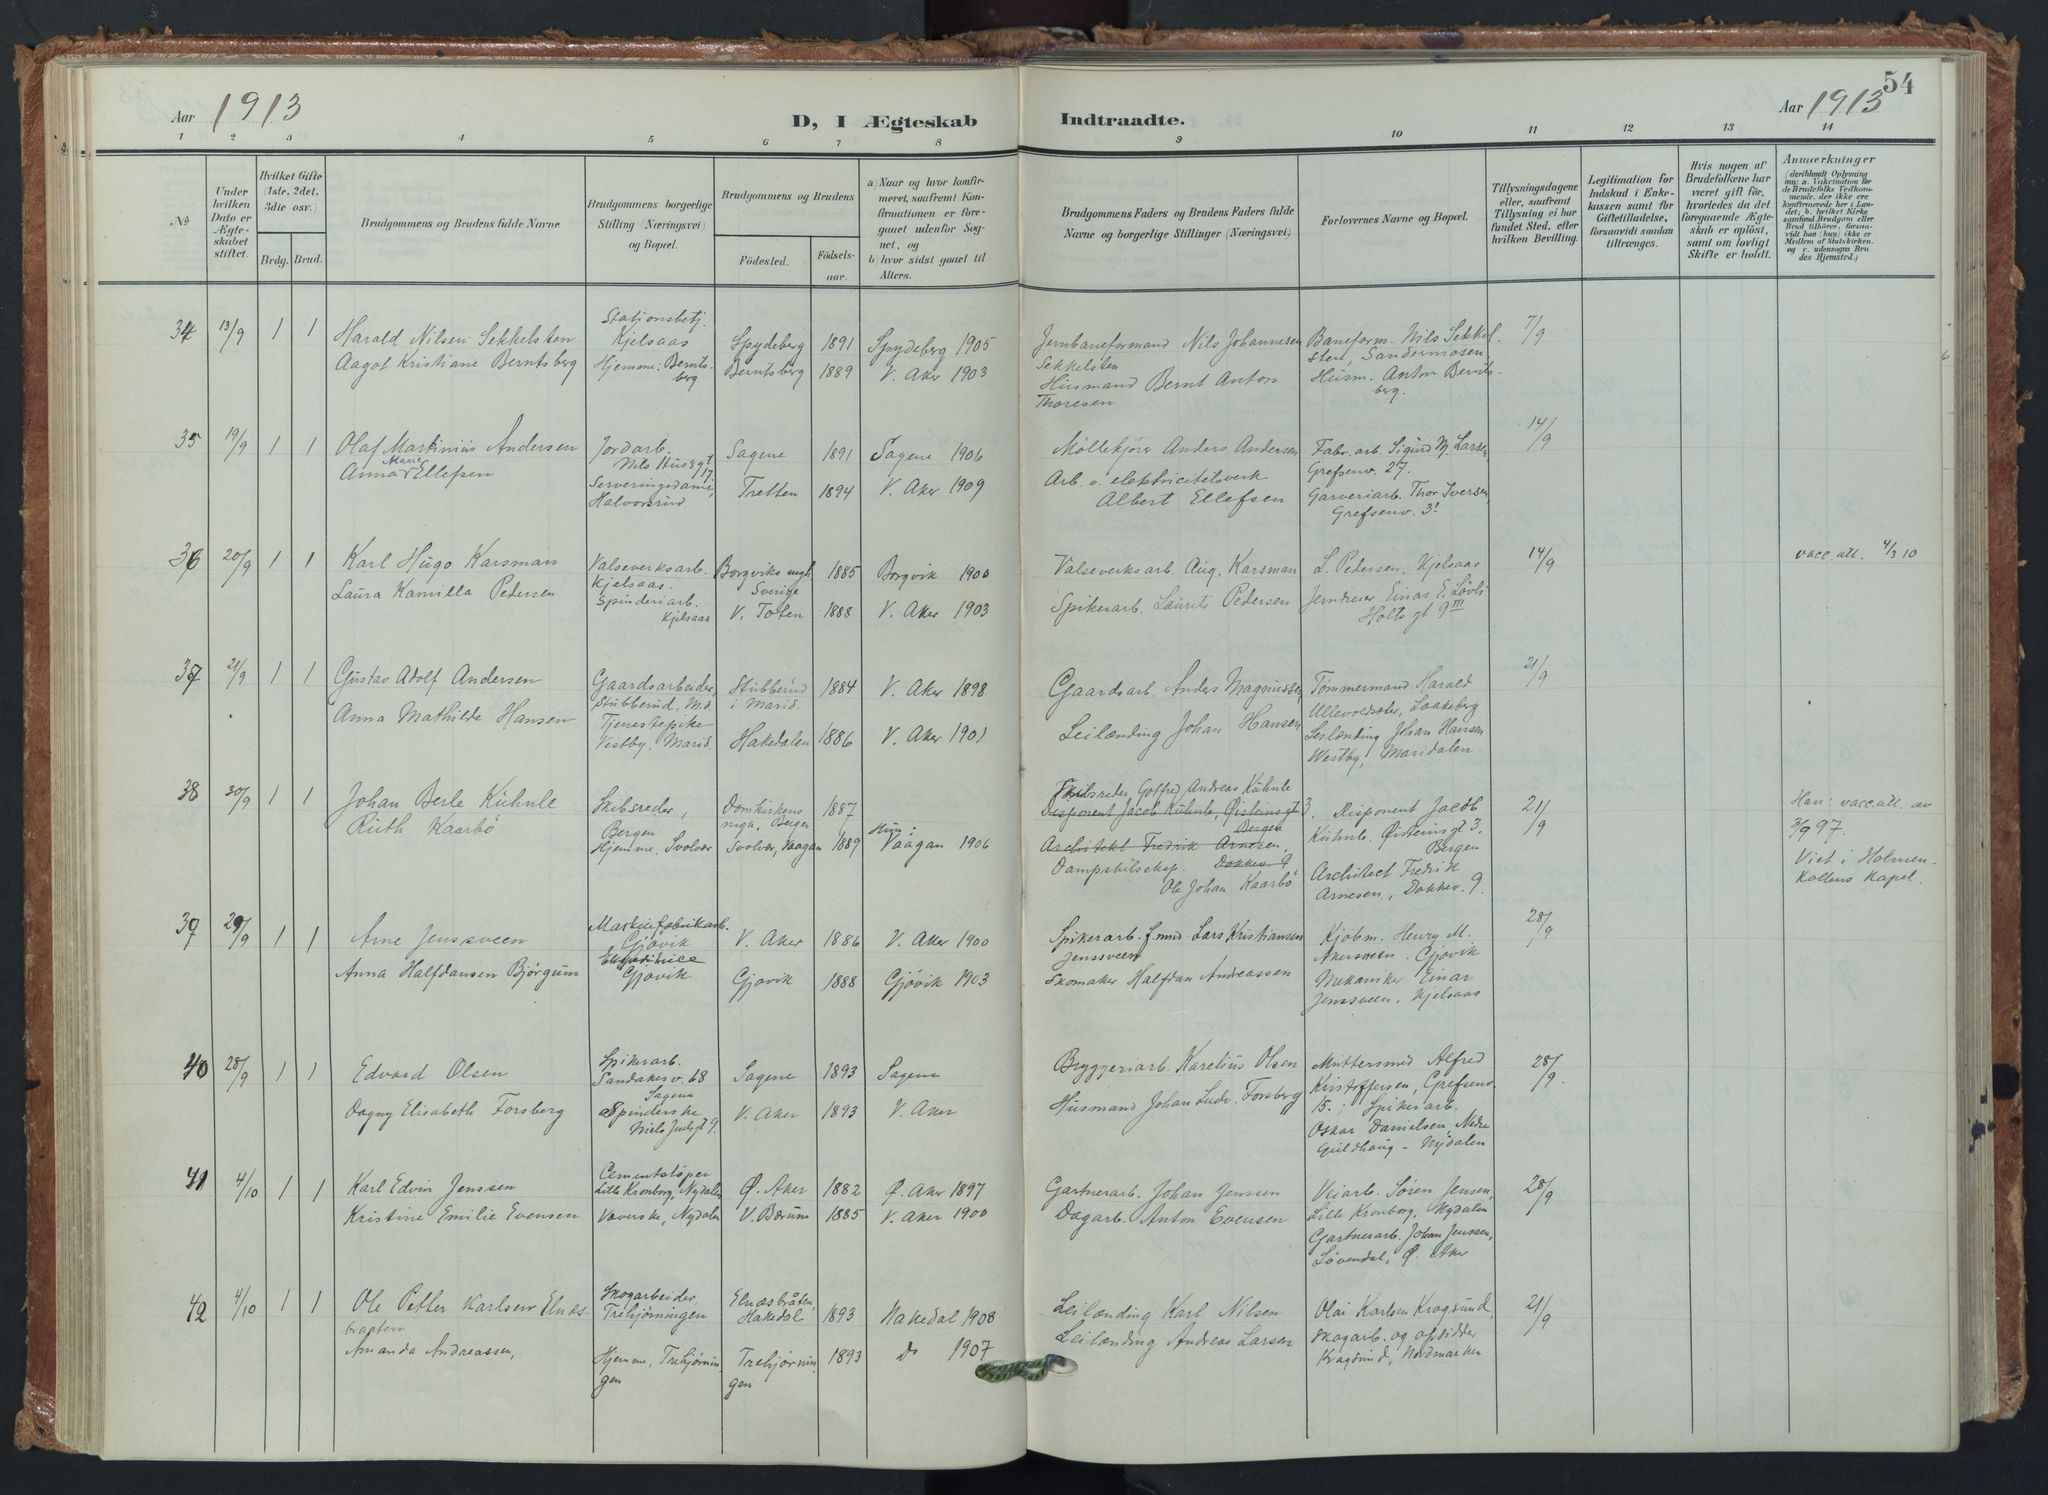 54
Aar 1913
D, I Ægteskab
Indtraadte.
Aar 1913
1 2 3 4 5 6 7 8 9 10 11 12 13 14
No
Under hvilken Dato er Ægteskabet stiftet.
Hvilket Gifte (1ste, 2det, 3die osv.)
Brdg. Brud.
Brudgommens og Brudens fulde Navne
Brudgommens borgerlige Stilling (Næringsvei) og Bopæl.
Brudgommens og Brudens
Födested. Födselsaar.
a) Naar og hvor konfirmeret, saafremt Konfirmationen er foregaaet udenfor Sognet, og
b) hvor sidst gaaet til Alters.
Brudgommens Faders og Brudens Faders fulde Navne og borgerlige Stillinger (Næringsvei)
Forlovernes Navne og Bopæl.
Tillysningsdagene eller, saafremt Tillysning ei har fundet Sted, efter hvilken Bevilling.
Legitimation for Indskud i Enkekassen samt for Giftetilladelse, forsaavidt saadan tiltrænges.
Hvis nogen af Brudefolkene har været gift før, hvorledes da det foregaaende Ægteskab er oplöst, samt om lovligt Skifte er holdt.
Anmærkninger
(deriblandt Oplysning om: a. Vakcination for de Brudefolks Vedkommende, der ikke ere konfirmerede her i Landet; b. hvilket Kirkesamfund Brudgom eller Brud tilhörer, forsaavidt han (hun) ikke er Medlem af Statskirken, og c. udensogns Brudes Hjemsted.)
34 13/9 1 1
Harald Nilsen Sekkelsten
Aagot Kristiane Berntsberg
Stationsbetj.
Kjelsaas
Hjemme: Berntsberg
Spydeberg 1891 Spydeberg 1905
Berntsberg 1889 V. Aker 1903
Jernbaneformand Nils Johannesen
Sekkelsten
Husmand Bernt Anton
Thoresen
Baneform. Nils Sekkelsten, Sandermosen
Husm. Anton Berntsberg.
7/9
35 19/9 1 1
Olaf Martinius Andersen
Anna Marie Ellefsen
Jordarb.
Nils Hus gt 17
Serveringsdame,
Halvorsrud
Sagene 1891 Sagene 1906
Tretten 1894 V. Aker 1909
Möllekjörer Anders Andersen
Arb. v. elektricitetsverk
Albert Ellefsen
Fabr. arb. Sigurd M. Larsen,
Grefsenv. 27.
Garveriarb. Thor Iversen,
Grefsenv. 31
14/9
36 20/9 1 1
Karl Hugo Karsman
Laura Kamilla Pedersen
Valseverksarb.
Kjelsaas.
Spinderiarb.
Kjelsaas
Borgviks mgh.
Sverige 1885 Borgvik 1900
V. Toten 1888 V. Aker 1903
Valseverksarb. Aug. Karsman
Spikerarb. Laurits Pedersen
L. Pedersen, Kjelsaas
Jerndreier Einar E. Lövli
Holts gt 9 III
14/9
vacc. att. 4/3 10
37 21/9 1 1
Gustav Adolf Andersen
Anna Mathilde Hansen
Gaardsarbeider,
Stubberud, M.d.
Tjenestepike
Vestby, Marid.
Stubberud
i Marid. 1884 V. Aker 1898
Hakedalen 1886 V. Aker 1901
Gaardsarb. Anders Magnussen
Leilænding Johan Hansen
Tömmermand Harald
Ullevoldsæter, Laakeberg
Leilænding Johan Hansen
Westby, Maridalen
21/9
38 30/9 1 1
Johan Berle Kühnle
Ruth Kaarbö
Skibsreder,
Bergen
Hjemme, Svolvær
Domkirkens
mgh. Bergen 1887
Svolvær, Vaagan 1889
Hun:
Vaagan 1906
Skibsreder, Gotfred Andreas Kühnle
Disponent Jacob Kühnle, Øisteinsgt 3,
Bergen
Architekt Fredrik Arnesen,
Dokkev. 9
Dampskibsexp.
Ole Johan Kaarbö
Disponent Jacob
Kühnle, Øisteinsgt 3.
Bergen
Architect Fredrik
Arnesen, Dokkev. 9.
21/9
Han: vacc. att. av
3/9 97.
Viet i Holmenkollens Kapel.
39 29/9 1 1
Arne Jenssveen
Anna Halfdansen Bjørgum
Maskinfabrikarb.
Gjövik
Ekspeditrice
Gjövik
V. Aker 1886 V. Aker 1900
Gjövik 1888 Gjövik 1903
Spikerarb. Lars Kristiansen
Jenssveen
Skomaker Halfdan Andreassen
Kjøbm. Henry M.
Akersveen. Gjövik
Mekaniker Einar
Jenssveen, Kjelsaas
28/9
40 28/9 1 1
Edvard Olsen
Dagny Elisabeth Forsberg
Spikerarb.
Sandakerv. 68
Sagene
Spinderske
Niels Juels gt 9.
Sagene 1893 Sagene
V. Aker 1893 V. Aker
Bryggeriarb. Karelius Olsen
Husmand Johan Ludv. Forsberg
Muttersmed Alfred
Kristoffersen, Grefsenv.
15. ; Spikerarb.
Oskar Danielsen, Nedre
Guldhaug - Nydalen
28/9.
41 4/10 1 1
Karl Edvin Jenssen
Kristine Emilie Evensen
Cementstöper
Lille Kronborg, Nydalen
Væverske, Nydalen
Ø. Aker 1882 Ø. Aker 1897
V. Bærum 1885 V. Aker 1900
Gartnerarb. Johan Jensen
Dagarb. Anton Evensen
Veiarb. Søren Jensen,
Lille Kronborg, Nydalen
Gartnerarb. Johan Jenssen,
Lövendal, Ø. Aker
28/9
42 4/10 1 1
Ole Petter Karlsen Elnæsbraaten
Amanda Andreassen,
Skogarbeider,
Trehjørningen
Hjemme, Trehjørningen
Elnæsbråten,
Hakedal 1893 Hakedal 1908
Trehjørningen 1893 Do 1907
Leilænding Karl Nilsen
Leilænding Andreas Larsen
Olai Karlsen Kragsund,
skogarb. og opsidder
Kragsund, Nordmarken
21/9